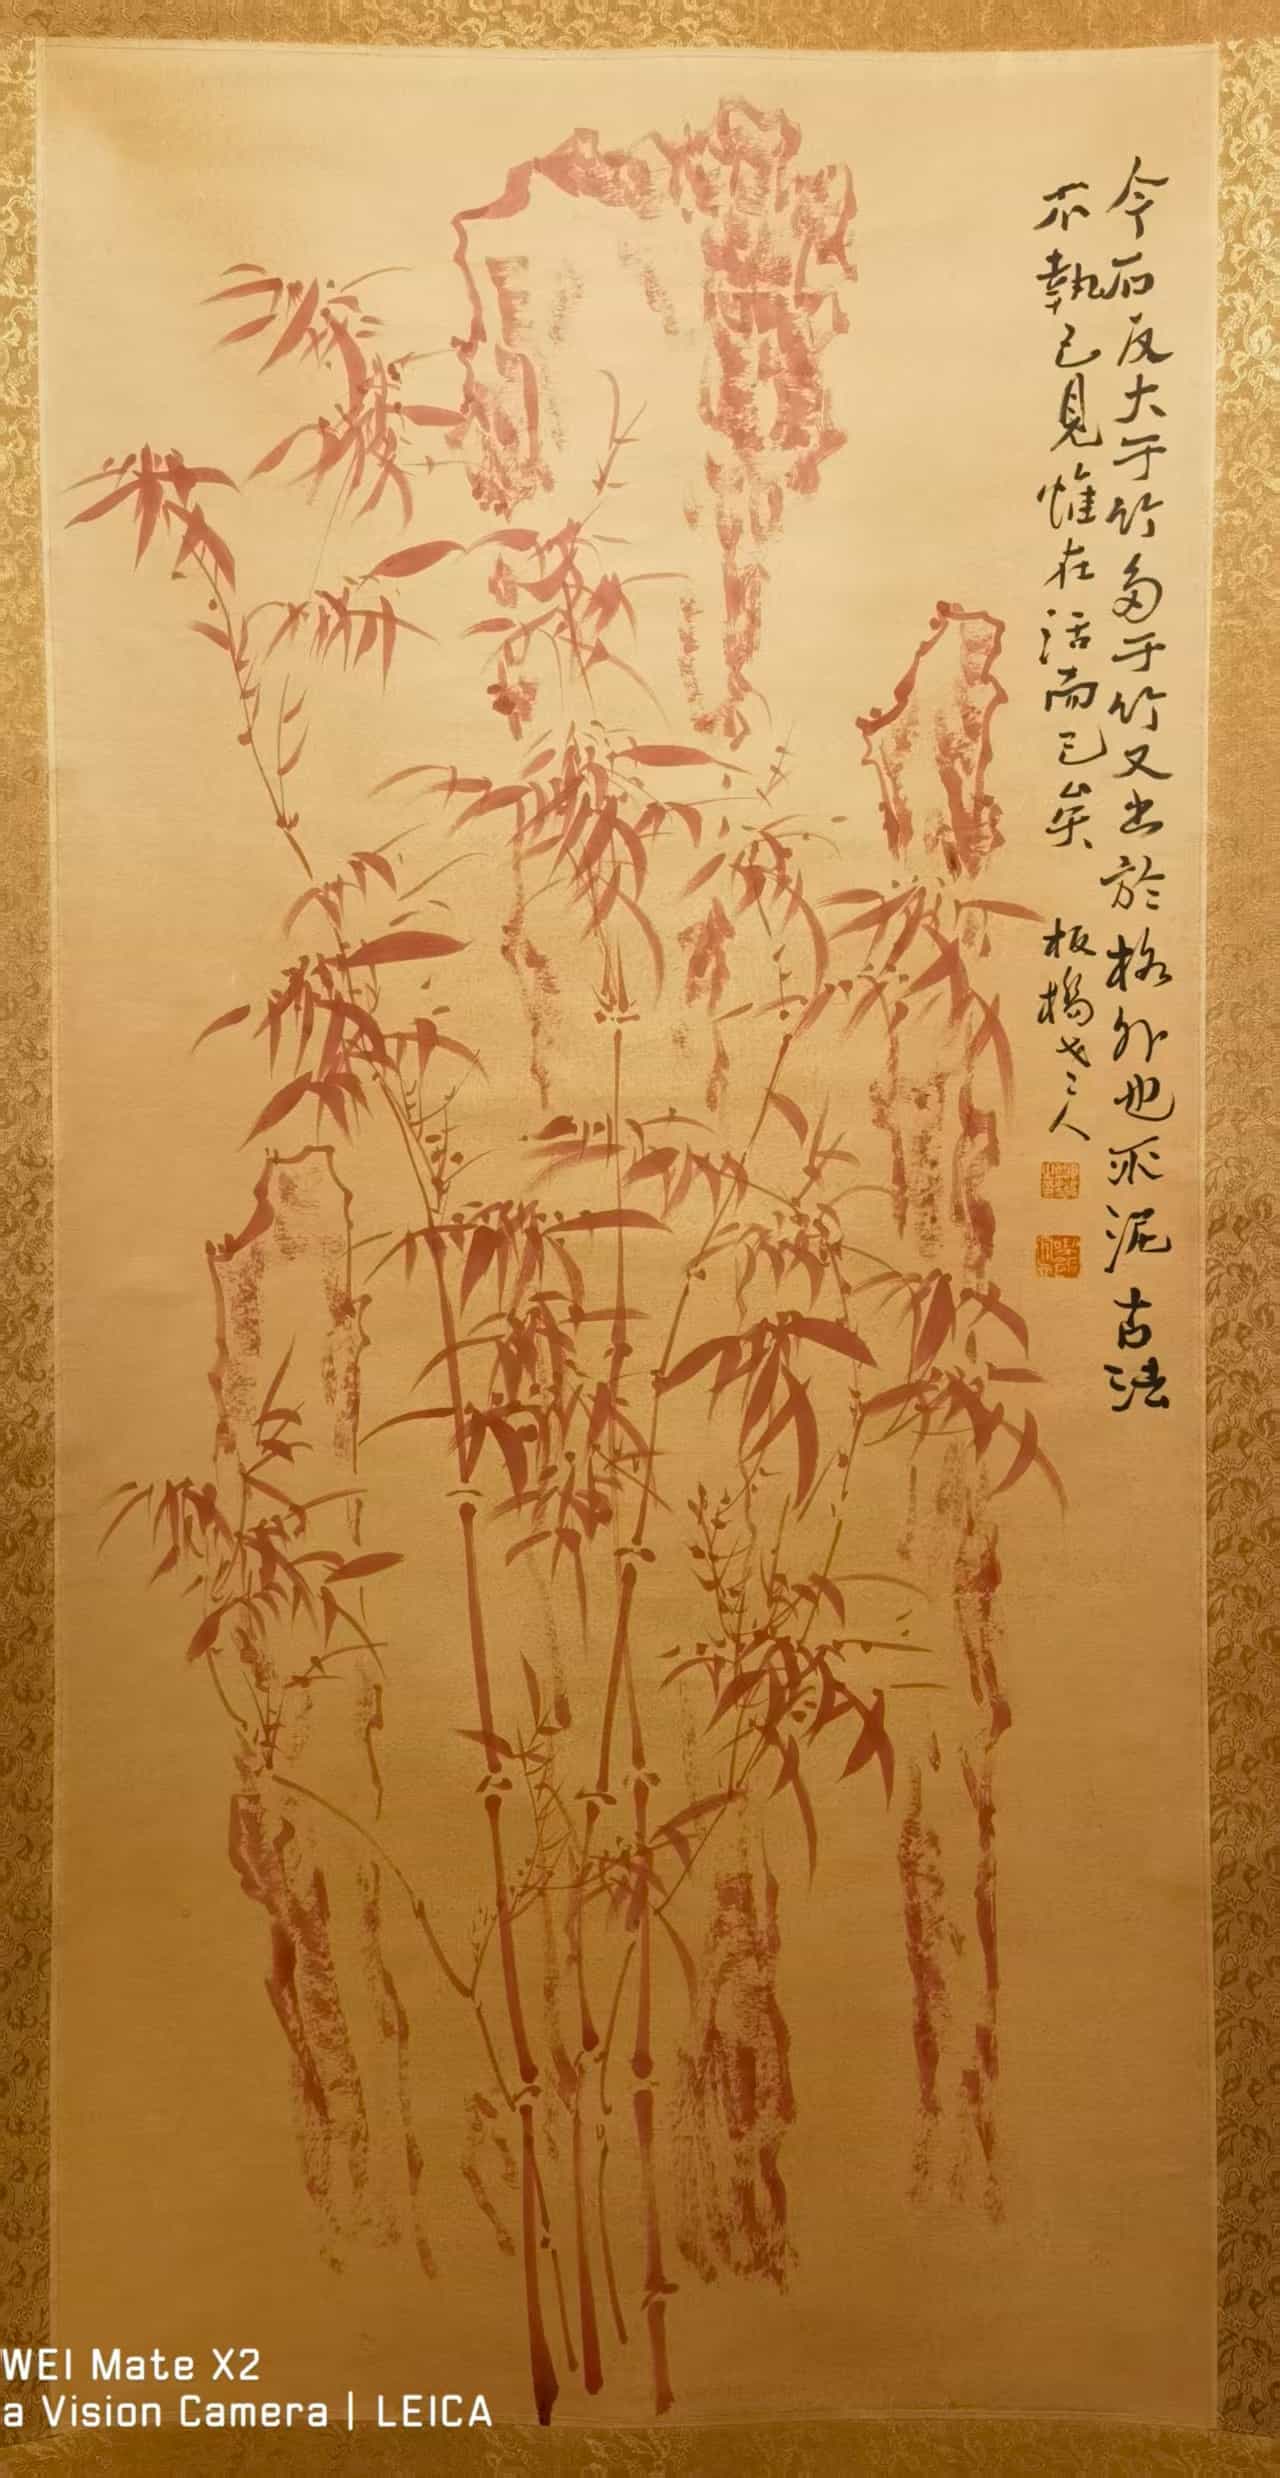 今石反大于竹多于竹又出於格外也不泥古法
不執己見惟在活而已矣
板橋老人
WEI Mate X2
a Vision Camera | LEICA